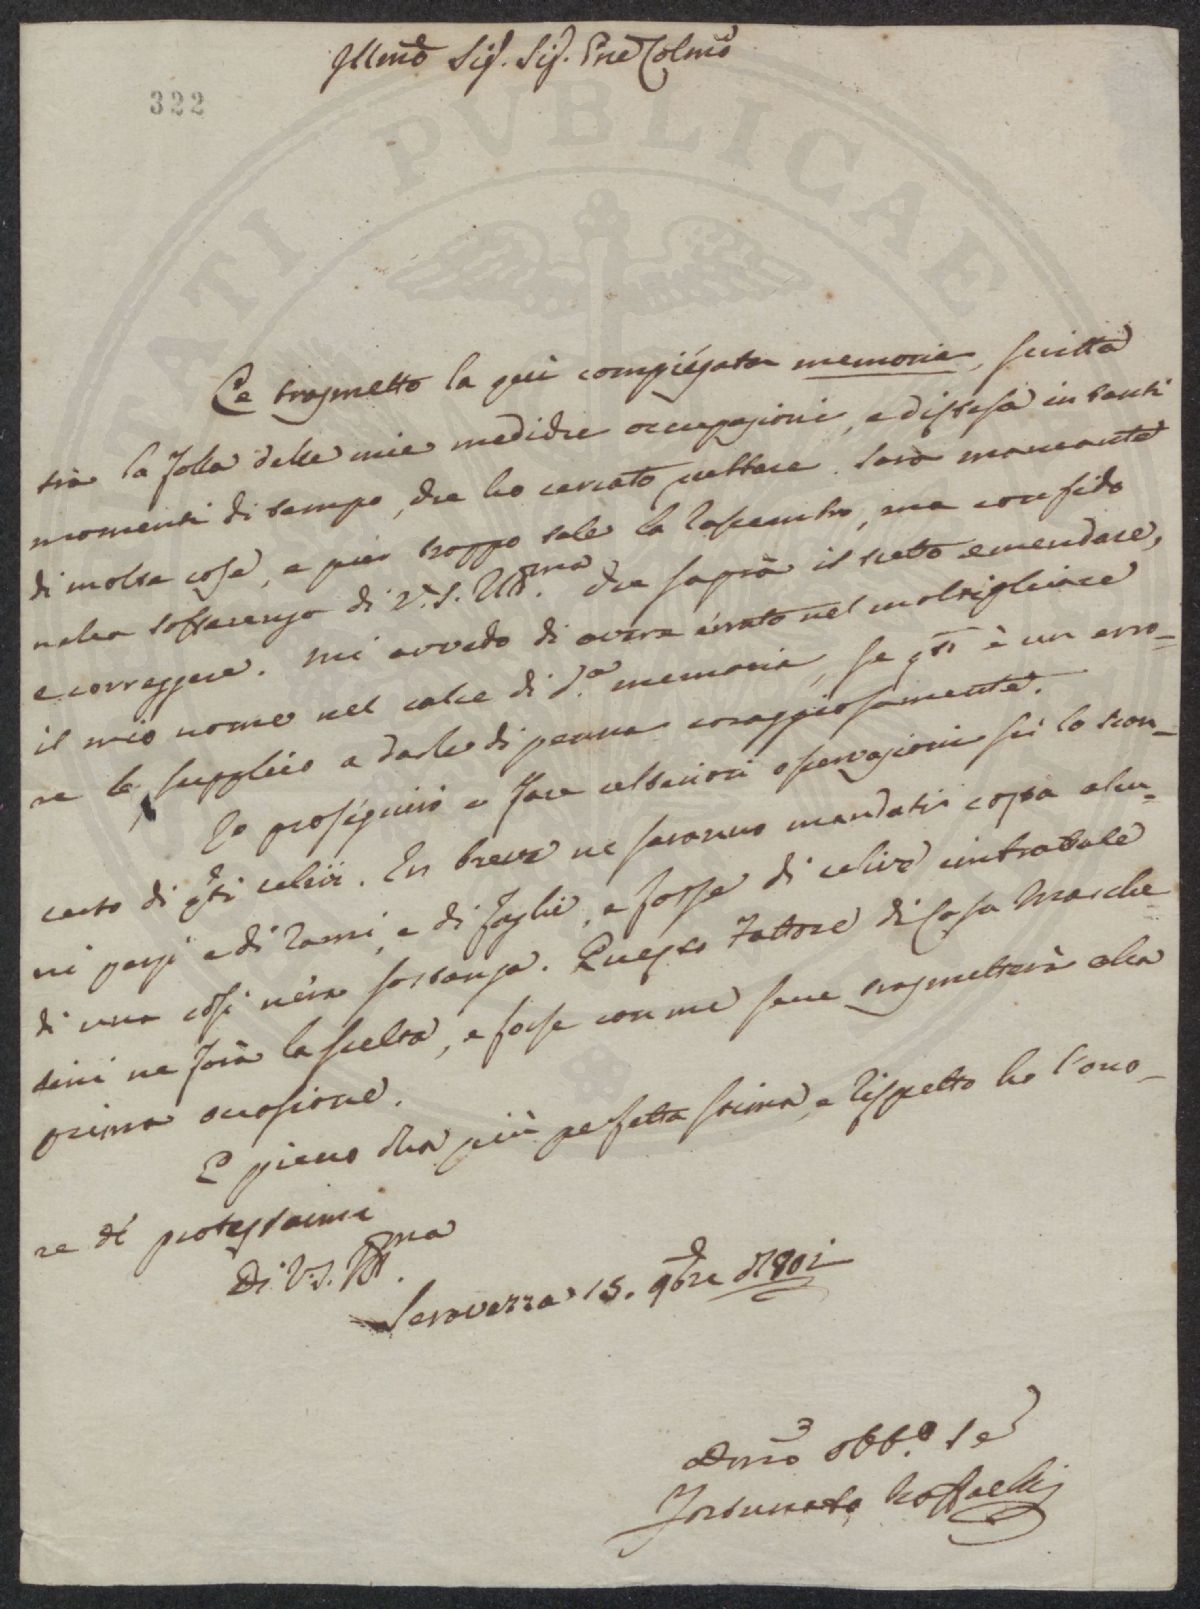 Illmo Sig. Sig. Pne Colmo
322
Le trasmetto la quì compiegata memoria, scritta
trà la folla delle mie mediche occupazioni, e distesa in tanti
momenti di tempo, che ho cercato mettere. Sarà mancante
di molte cose, e pur troppo tale la ravviserà, ma confido
nella sofferenza di V. S. Illma. che saprà il tutto emendare,
e correggere. Mi avvedo di avere errato nel
il mio nome nel calce di d.a memoria, se qsti è un erro-
re la supplico a darle di penna coraggiosamente.
Io proseguirò a fare ulteriori osservazioni sù lo scon-
certo di qsti ulivi. In breve ne saranno mandati costà alcu-
ni pezzi e di rami, e di foglie, e forse di ulive imbrattate
di una così nera sostanza. Questo Fattore di Casa Marche
sini ne farà la scelta, e forse con me stesse trasmetterà alla
prima occasione.
E pieno della più perfetta stima, e rispetto ho l'ono-
re di protestarmi
Di V. S. Illma.
Seravezza 15. 9bre 1801
Dmo obb.o Se
Fortunato Raffaelli
SALVTATI PVBLICAE